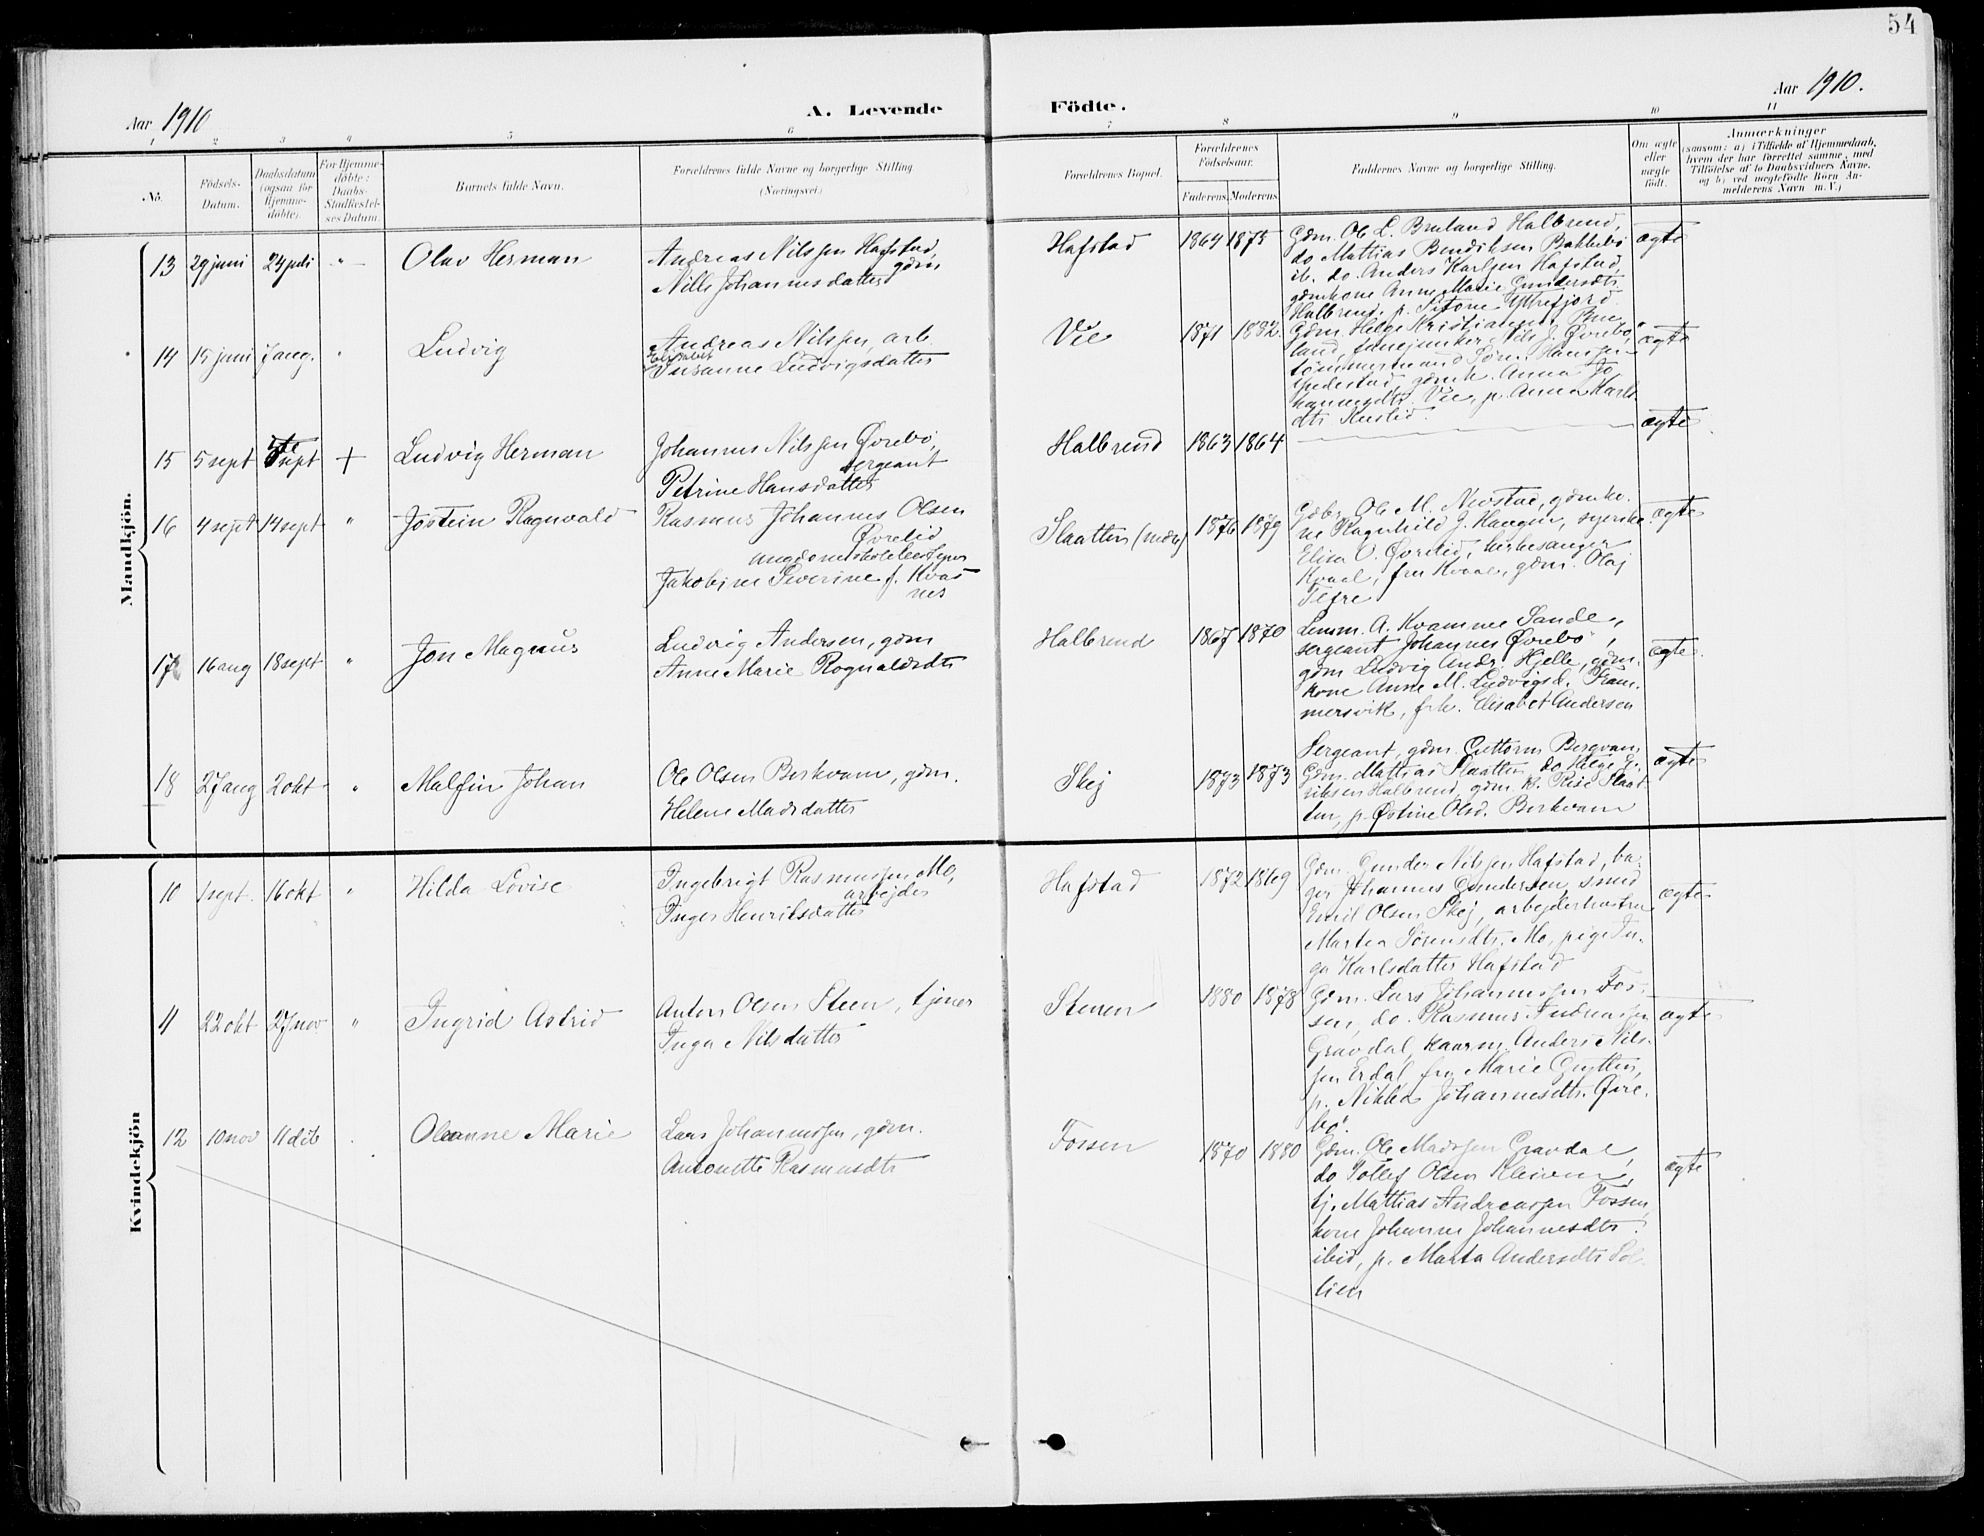 54
Aar 1910
A. Levende
Födte.
Aar 1910.
1 2 3 4 5 6 7 8 9 10 11
No.
Födsels-
Datum.
Daabsdatum
(ogsaa for
Hjemme-
döbte).
For Hjemme-
döbte:
Daabs-
Stadfæstel-
ses Datum.
Barnets fulde Navn.
Forældrenes fulde Navne og borgerlige Stilling
(Næringsvei.)
Forældrenes Bopæl.
Forældrenes
Födselsaar.
Faderens. Moderens.
Faddernes Navne og borgerlige Stilling.
Om ægte
eller
uægte
födt.
Anmærkninger
(saasom: a) i Tilfælde af Hjemmedaab,
hvem der har forrettet samme, med
Tilföielse af to Daabsvidners Navne.
og b) ved uægtefödte Börn An-
melderens Navn m. V.)
Mandkjön.
13 29 juni 24 juli " Olav Herman
Andreas Nilssen Hafstad,
gdm
Nille Johannesdatter
Hafstad 1864 1875
Gdm. Ole L. Bruland Halbrend,
do Mattias Bendiksen Bakkebø
ib. do. Anders Karlsen Hafstad,
gdmkone Anne Marie Gundersdtr
Halbrend, p. Sitone Yttrefjord
ægte
14 15 juni 7 aug. " Ludvig
Andreas Nilssen, arb.
Elisabet
Susanne Ludvigsdatter
Vie 1871 1882.
Gdm. Helge Kristiansen Bru-
land, fanejunker Nils J. Øvrebø,
tømmermand Søren Hanssen
Indestad, gdmk. Anna Jo-
hannesdtr. Vie, p. Anna Karls-
dtr Kuslid.
ægte
15 5 sept sept + Ludvig Herman
Johannes Nilssen Øvrebø,
sergeant
Petrine Hansdatter
Halbrend 1863 1864
ægte
16 4 sept 14 sept " Jostein Ragnvald
Rasmus Johannes Olsen
Øvrelid
ungdomsskolebestyrer
Jakobine Severine f. Kvas-
nes
Slaatten (indre) 1876 1879
Gdbr. Ole M. Nevstad, gdmko-
ne Ragnhild J. Haugen, syerske
Elisa O. Øvrelid, kirkesanger
Kvaal, fru Kvaal, gdm. Olaj
Tefre
ægte
17 16 aug 18 sept " Jon Magnus
Ludvig Andersen, gdm
Anne Marie Rognaldsdtr
Halbrend 1867 1870
Lensm. A. Kvamme Sande,
sergeant Johannes Øvrebø,
gdm Ludvig Andr. Hjelle, gdm.
kone Anne M. Ludvigsd. Fram-
mersvik, frk. Elisabet Andersen
ægte.
18 27 aug 2 okt " Malfin Johan
Ole Olsen Berkvam, gdm.
Helene Madsdatter
Skej 1873 1873
Sergeant, gdm. Guttorm Bergvam
Gdm. Mattias Slaatten, do Helge
riksen Halbrend, gdm. k. Rise Slaat-
ten, p. Østine Olsd. Berkvam
ægte
Kvindekjön
10 1 sept. 16 okt " Hilda Lovise
Ingebrigt Rasmussen Mo,
arbejder
Inger Henriksdatter
Hafstad 1872 1869
Gdm. Gunder Nilssen Hafstad, ba-
ger Johannes Gundersen, smed
Emil Olsen Skej, arbejderhustru
Martea Sørensdtr. Mo, pige In-
ga Karlsdatter Hafstad
ægte
11 22 okt 27 nov " Ingrid Astrid
Anton Olsen Steen, tjener
Inga Nilsdatter
Stenen 1880 1878
Gdm. Lars Johannessen Fos-
sen, do. Rasmus Andreassen
Gravdal, kaarm. Anders Nils-
sen Erdal, fru Marie Grytten,
p. Nikka Johannesdtr. Øvre-
bø.
ægte
12 10 nov 11 dec . Oleanne Marie
Lars Johannessen, gdm.
Antonette Rasmusdtr
Fossen 1870 1880
Gdm. Ole Madssen Gravdal,
do Tollef Olsen Kleiven,
tj. Mattias Andreassen Fossen,
kone Johanne Johannesdtr
ibid, p. Marta Andersdtr Sol-
lien
ægte